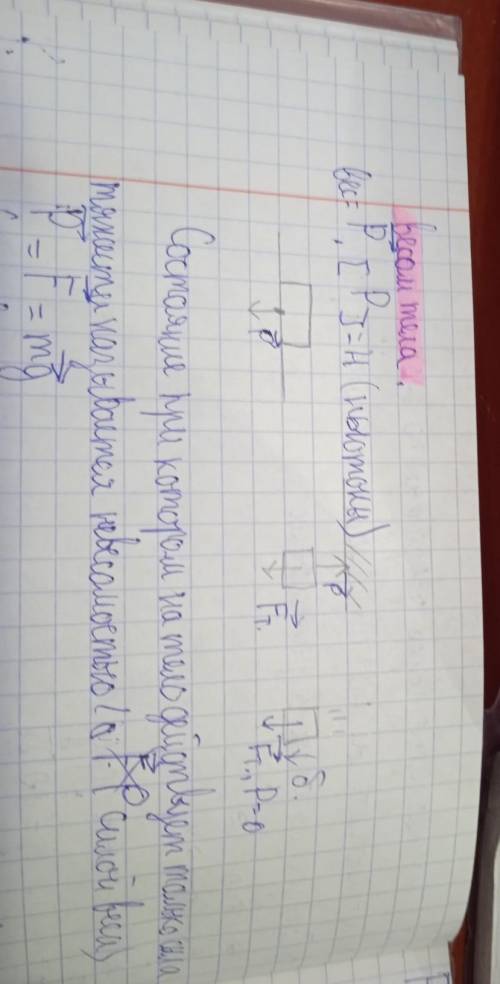 весом тела.
вес = P, [P] = Н (ньютоны)
P
P
Fт.
Fт., P=0
Состояние при котором на тело действует только сила
тяжести называется невесомостью ( силой веса)
P = F = mg